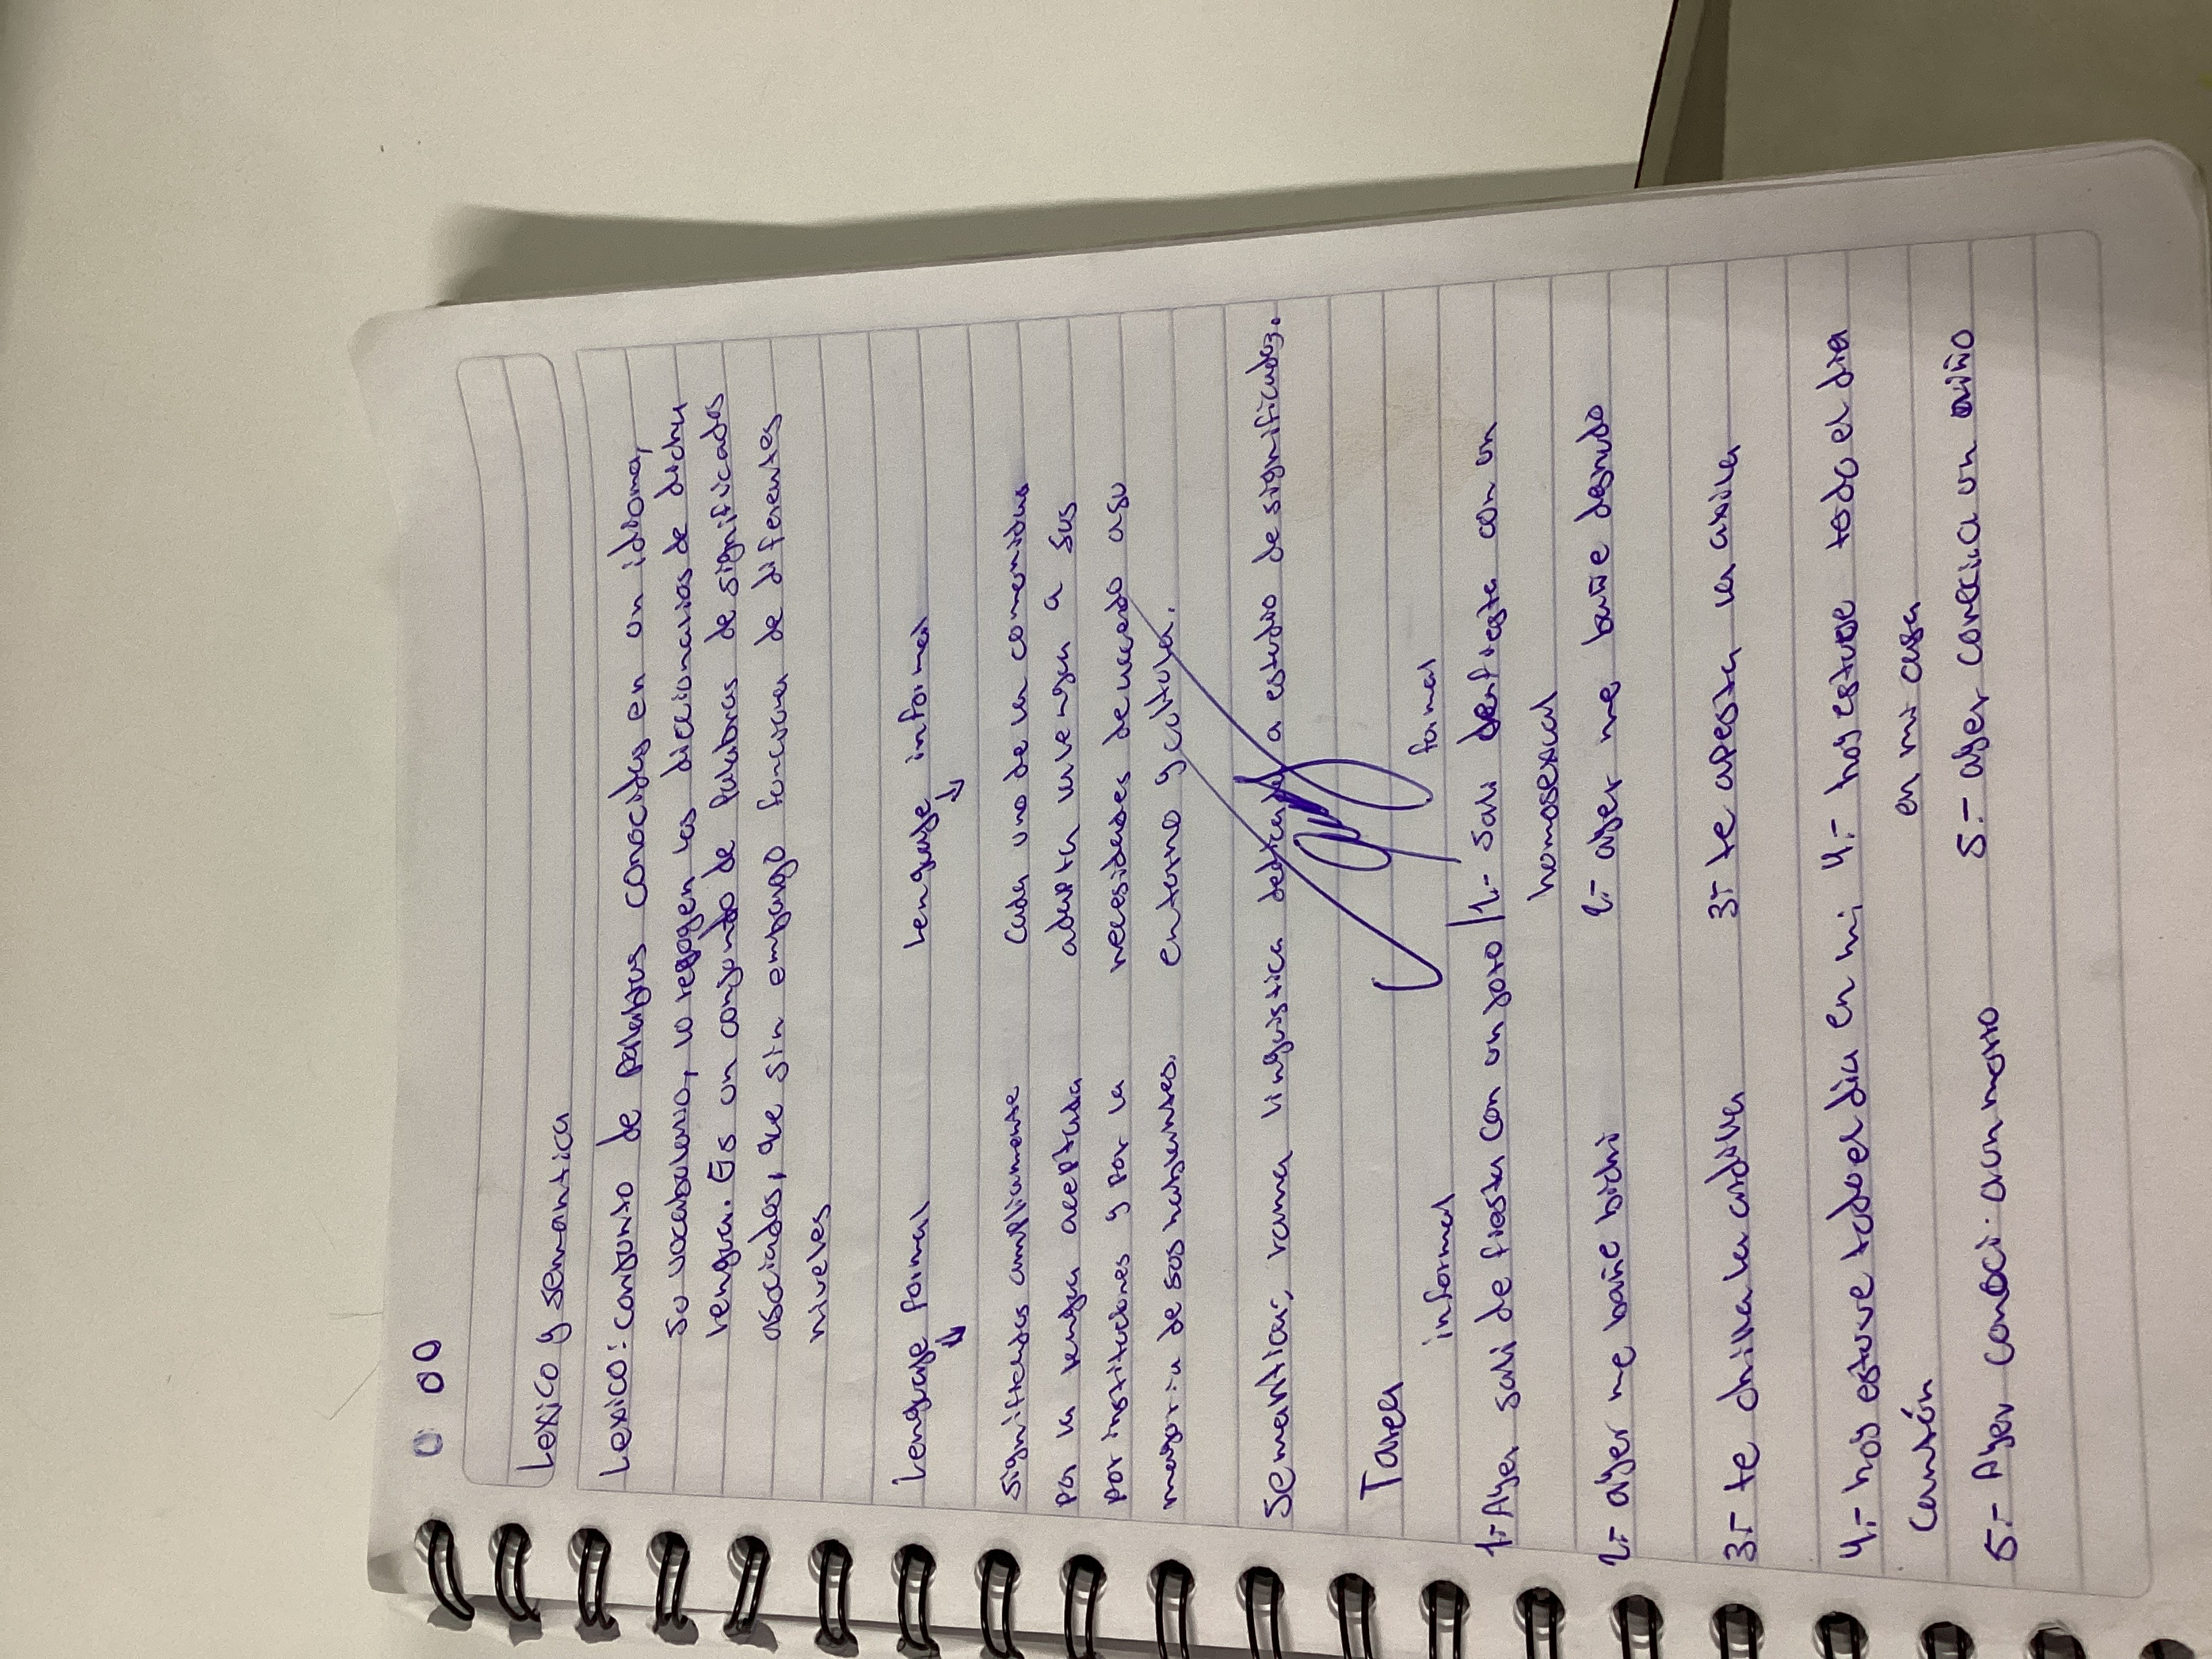 Lexico y semantica
Lexico: conjunto de palabras conocidas en un idioma,
su vocabulario, lo recogen los diccionarios de dicha
lengua. Es un conjunto de palabras de significados
asociados, que sin embargo funcionan de diferentes
niveles
Lenguaje formal
significados ampliamente
por la lengua aceptada
por instituciones y por la
mayoria de sus hablantes.
Lenguaje informal
Cada uno de la comunidad
adapta la lengua a sus
necesidades de acuerdo a su
entorno y cultura.
Semantica, rama linguistica dedicada a estudio de significados.
Tarea
informal
1.- Ayer sali de fiesta con un joto
2.- ayer me bañe bichi
3.- te chilla la ardilla
4.- hoy estuve todo el dia en mi
cantón
5.- Ayer conoci a un morro
formal
1.- Sali de fiesta con un
homosexual
2.- ayer me bañe desnudo
3.- te apesta la axila
4.- hoy estuve todo el dia
en mi casa
5.- ayer conoci a un niño